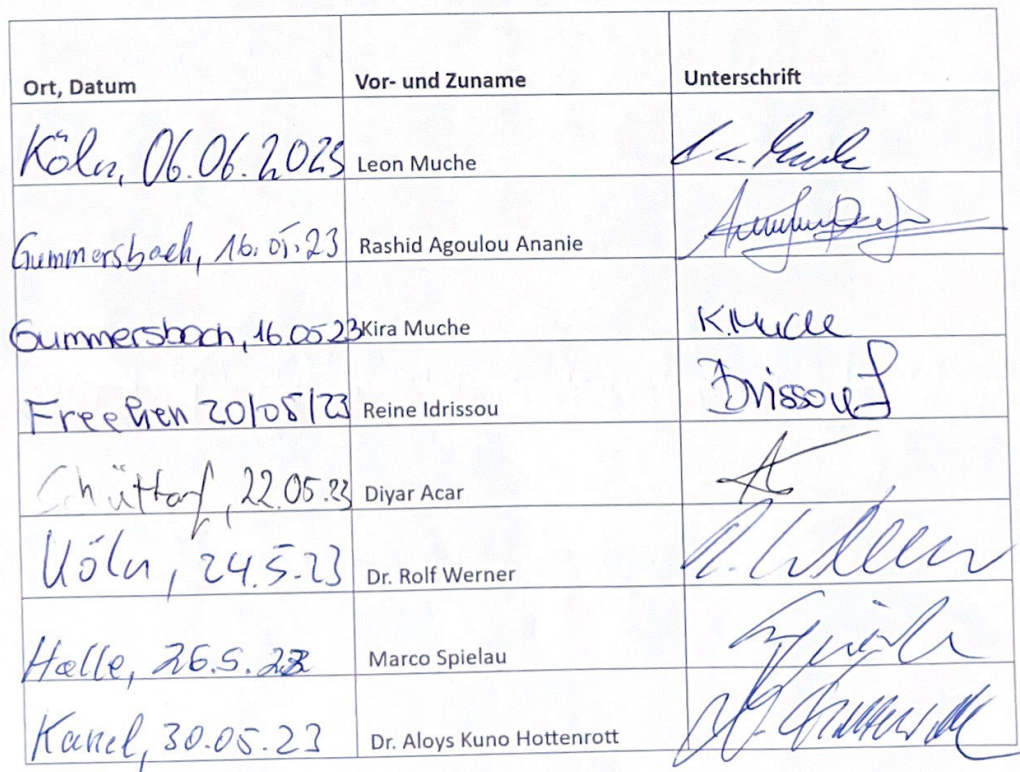 Ort, Datum Vor- und Zuname Unterschrift
Köln, 06.06.2023 Leon Muche
Gummersbach, 16.05.23 Rashid Agoulou Ananie
Gummersbach, 16.05 23 Kira Muche K.Muche
Freehen 20/05/23 Reine Idrissou Idrissou
22.05.23 Diyar Acar
Köln, 24.5.23 Dr. Rolf Werner R. Werner
Halle, 26.5.23 Marco Spielau
30.05.23 Dr. Aloys Kuno Hottenrott